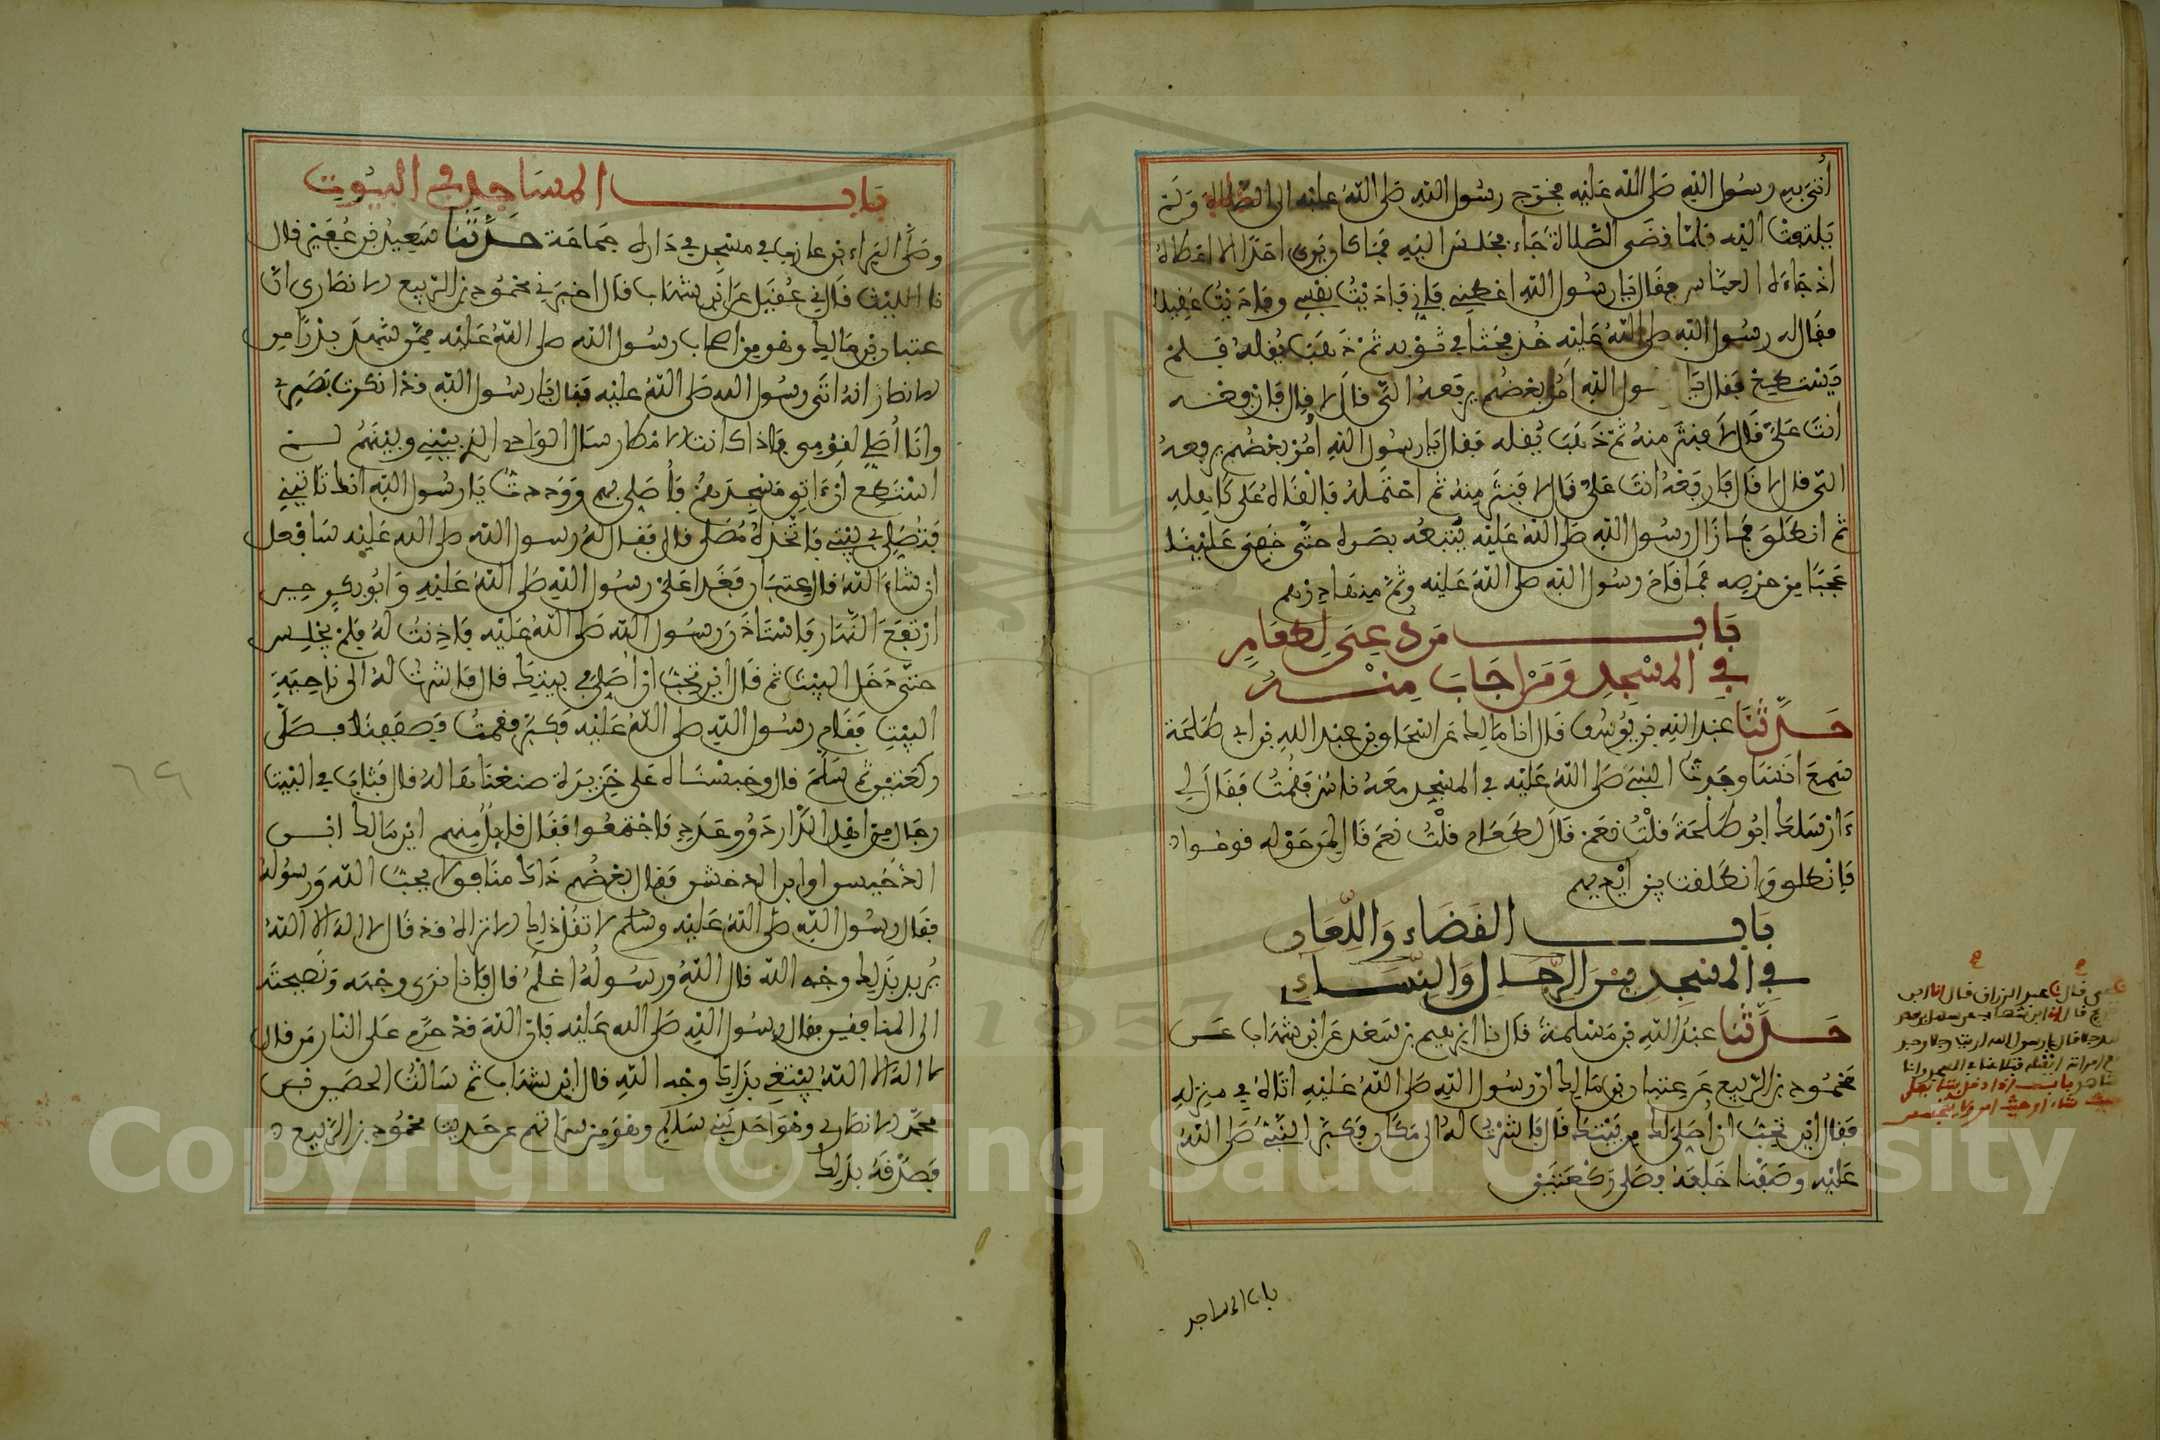 أتي به رسول الله صلى الله عليه فخرج رسول الله صلى الله عليه الى الصلاة ولم
يلتفت اليه فلما قضى الصلاة جاء فجلس اليه فما كان يرى احدا الا اعطاه
اذ جاءه العباس فقال يا رسول الله اعطني فاني فاديت نفسي وفاديت عقيلا
فقال له رسول الله صلى الله عليه خذ فحثا في ثوبه ثم ذهب يقله فلم
يستطع فقال يا رسول الله أمر بعضهم يرفعه الي قال لا قال فارفعه
انت علي قال لا فنثر منه ثم ذهب يقله فقال يا رسول الله أمر بعضهم يرفعه
الي قال لا قال فارفعه انت علي قال لا فنثر منه ثم احتمله فالقاه على كاهله
ثم انطلق فما زال رسول الله صلى الله عليه يتبعه بصره حتى خفي علينا
عجبا من حرصه فما قام رسول الله صلى الله عليه وثم منها درهم
باب من دعي لطعام
في المسجد ومن اجاب منه
حدثنا عبد الله بن يوسف قال انا مالك عن اسحاق بن عبد الله بن ابي طلحة
سمع انسا وجدت النبي صلى الله عليه في المسجد معه ناس فقمت فقال لي
ءارسلك ابو طلحة قلت نعم قال لطعام قلت نعم قال لمن حوله قوموا
فانطلق وانطلقت بين ايديهم
باب القضاء واللعان
في المسجد بين الرجال والنساء
حدثنا عبد الله بن مسلمة قال نا ابرهيم بن سعد عن ابن شهاب عن
محمود بن الربيع عن عتبان بن مالك ان رسول الله صلى الله عليه اتاه في منزله
فقال اين تحب ان أصلي لك من بيتك قال فاشرت له الى مكان فكبر النبي صلى الله
عليه وصفنا خلفه فصلى ركعتين
قال نا عبد الرزاق قال انا ابن
قال انا ابن شهاب عن سهل بن سعد
ان رجلا قال يا رسول الله ارايت رجلا وجد
مع امراته رجلا ايقتله فتلاعنا في المسجد وانا
شاهد باب اذا دخل بيتا يصلي
حيث شاء او حيث امر ولا يتجسس
باب المساجد
باب المساجد في البيوت
وصلى البراء بن عازب في مسجد في داره جماعة حدثنا سعيد بن عفير قال
نا الليث قال ني عقيل عن ابن شهاب قال اخبرني محمود بن الربيع الانصاري ان
عتبان بن مالك وهو من اصحاب رسول الله صلى الله عليه ممن شهد بدرا من
الانصار انه اتى رسول الله صلى الله عليه فقال يا رسول الله قد انكرت بصري
وانا أصلي لقومي فاذا كانت الامطار سال الوادي الذي بيني وبينهم لم
استطع ان ءاتي مسجدهم فأصلي بهم ووددت يا رسول الله انك تاتيني
فتصلي في بيتي فاتخذه مصلى قال فقال له رسول الله صلى الله عليه سافعل
ان شاء الله قال عتبان فغدا علي رسول الله صلى الله عليه وابو بكر حين
ارتفع النهار فاستاذن رسول الله صلى الله عليه فاذنت له فلم يجلس
حتى دخل البيت ثم قال اين تحب ان أصلي في بيتك قال فاشرت له الى ناحية
البيت فقام رسول الله صلى الله عليه فكبر فقمنا فصففنا فصلى
ركعتين ثم سلم قال وحبسناه على خزيرة صنعناها له قال فثاب في البيت
رجال من اهل الدار ذوو عدد فاجتمعوا فقال قايل منهم اين مالك ابن
الدخيشن او ابن الدخشن فقال بعضهم ذلك منافق لا يحب الله ورسوله
فقال رسول الله صلى الله عليه وسلم لا تقل ذلك الا تراه قد قال لا اله الا الله
يريد بذلك وجه الله قال الله ورسوله اعلم قال فانا نرى وجهه ونصيحته
الى المنافقين فقال رسول الله صلى الله عليه فان الله قد حرم على النار من قال
لا اله الا الله يبتغي بذلك وجه الله قال ابن شهاب ثم سالت الحصين بن
محمد الانصاري وهو احد بني سالم وهو من سراتهم عن حديث محمود بن الربيع
فصدقه بذلك
٦٩
Copyright © King Saud University
1957